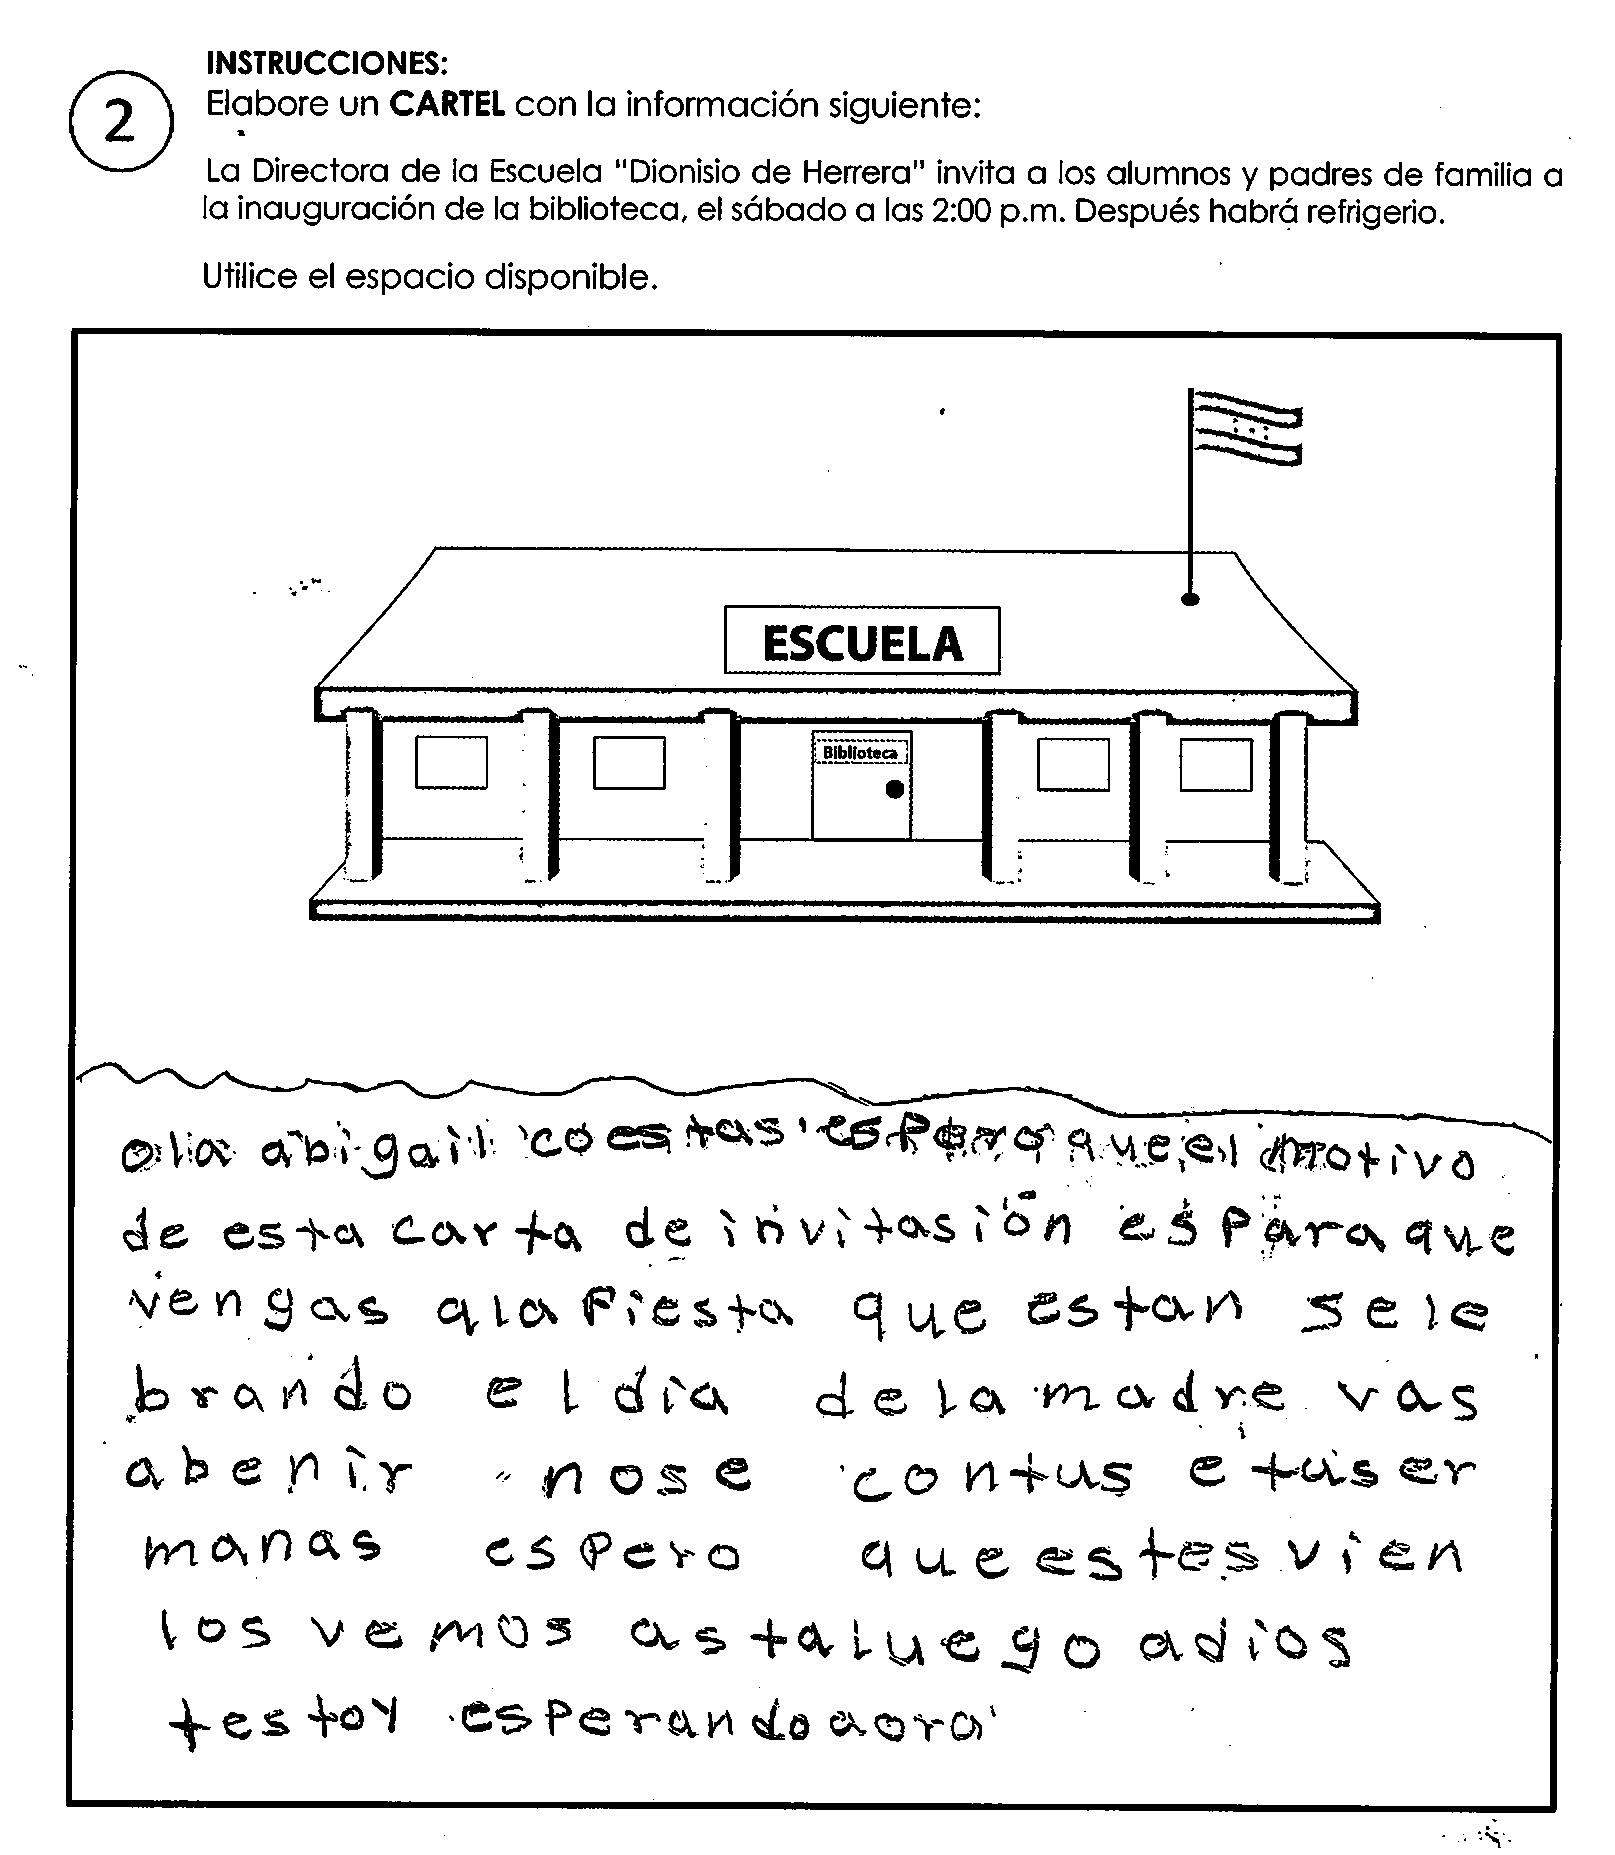 INSTRUCCIONES:
2
Elabore un CARTEL con la información siguiente:
La Directora de la Escuela "Dionisio de Herrera" invita a los alumnos y padres de familia a
la inauguración de la biblioteca, el sábado a las 2:00 p.m. Después habrá refrigerio.
Utilice el espacio disponible.
ESCUELA
Biblioteca
ola abigail co estas espero que el motivo
de esta carta de invitasión es para que
vengas a la fiesta que estan sele
brando el día de la madre vas
abenir nose contus e tuser
manas espero que estes vien
los vemos asta luego adios
testoy esperando aora